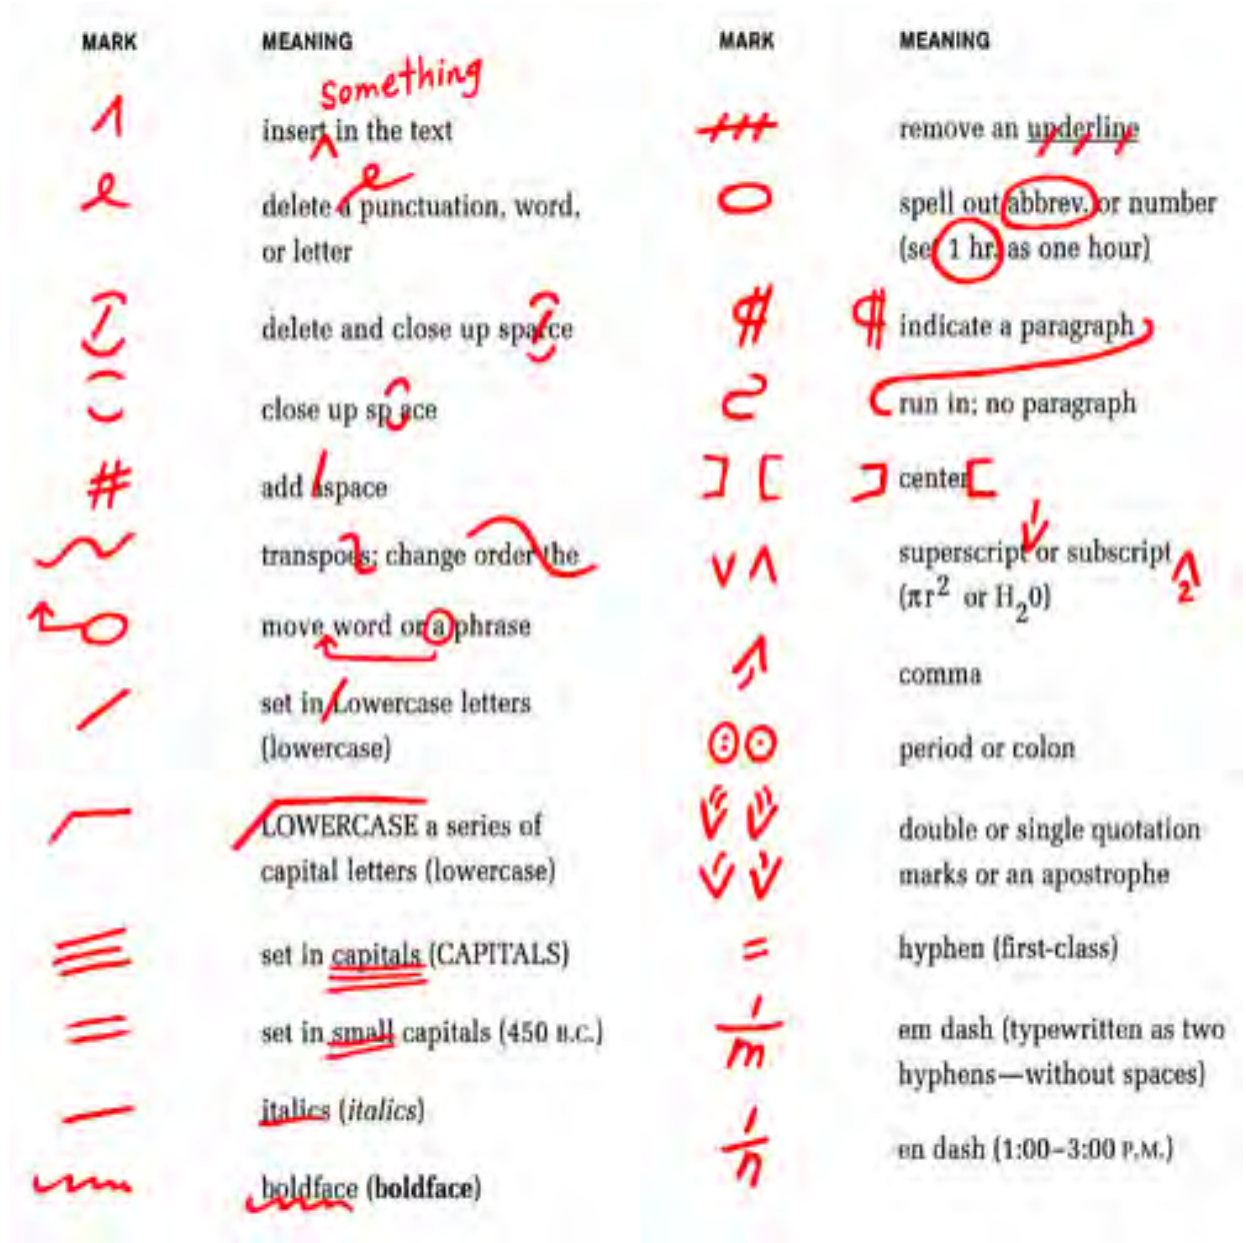 MARK MEANING
something
insert in the text
delete a punctuation, word,
or letter
delete and close up spacce
close up sp ace
# add aspace
transpoes; change order the
move word or a phrase
set in Lowercase letters
(lowercase)
LOWERCASE a series of
capital letters (lowercase)
set in capitals (CAPITALS)
set in small capitals (450 B.C.)
italics (italics)
boldface (boldface)
MARK MEANING
remove an underline
spell out abbrev. or number
(set 1 hr. as one hour)
¶ ¶ indicate a paragraph
run in; no paragraph
] [ ] center [
superscript or subscript
2
(πr² or H₂0)
comma
period or colon
double or single quotation
marks or an apostrophe
= hyphen (first-class)
1
m
em dash (typewritten as two
hyphens—without spaces)
1
n
en dash (1:00–3:00 P.M.)